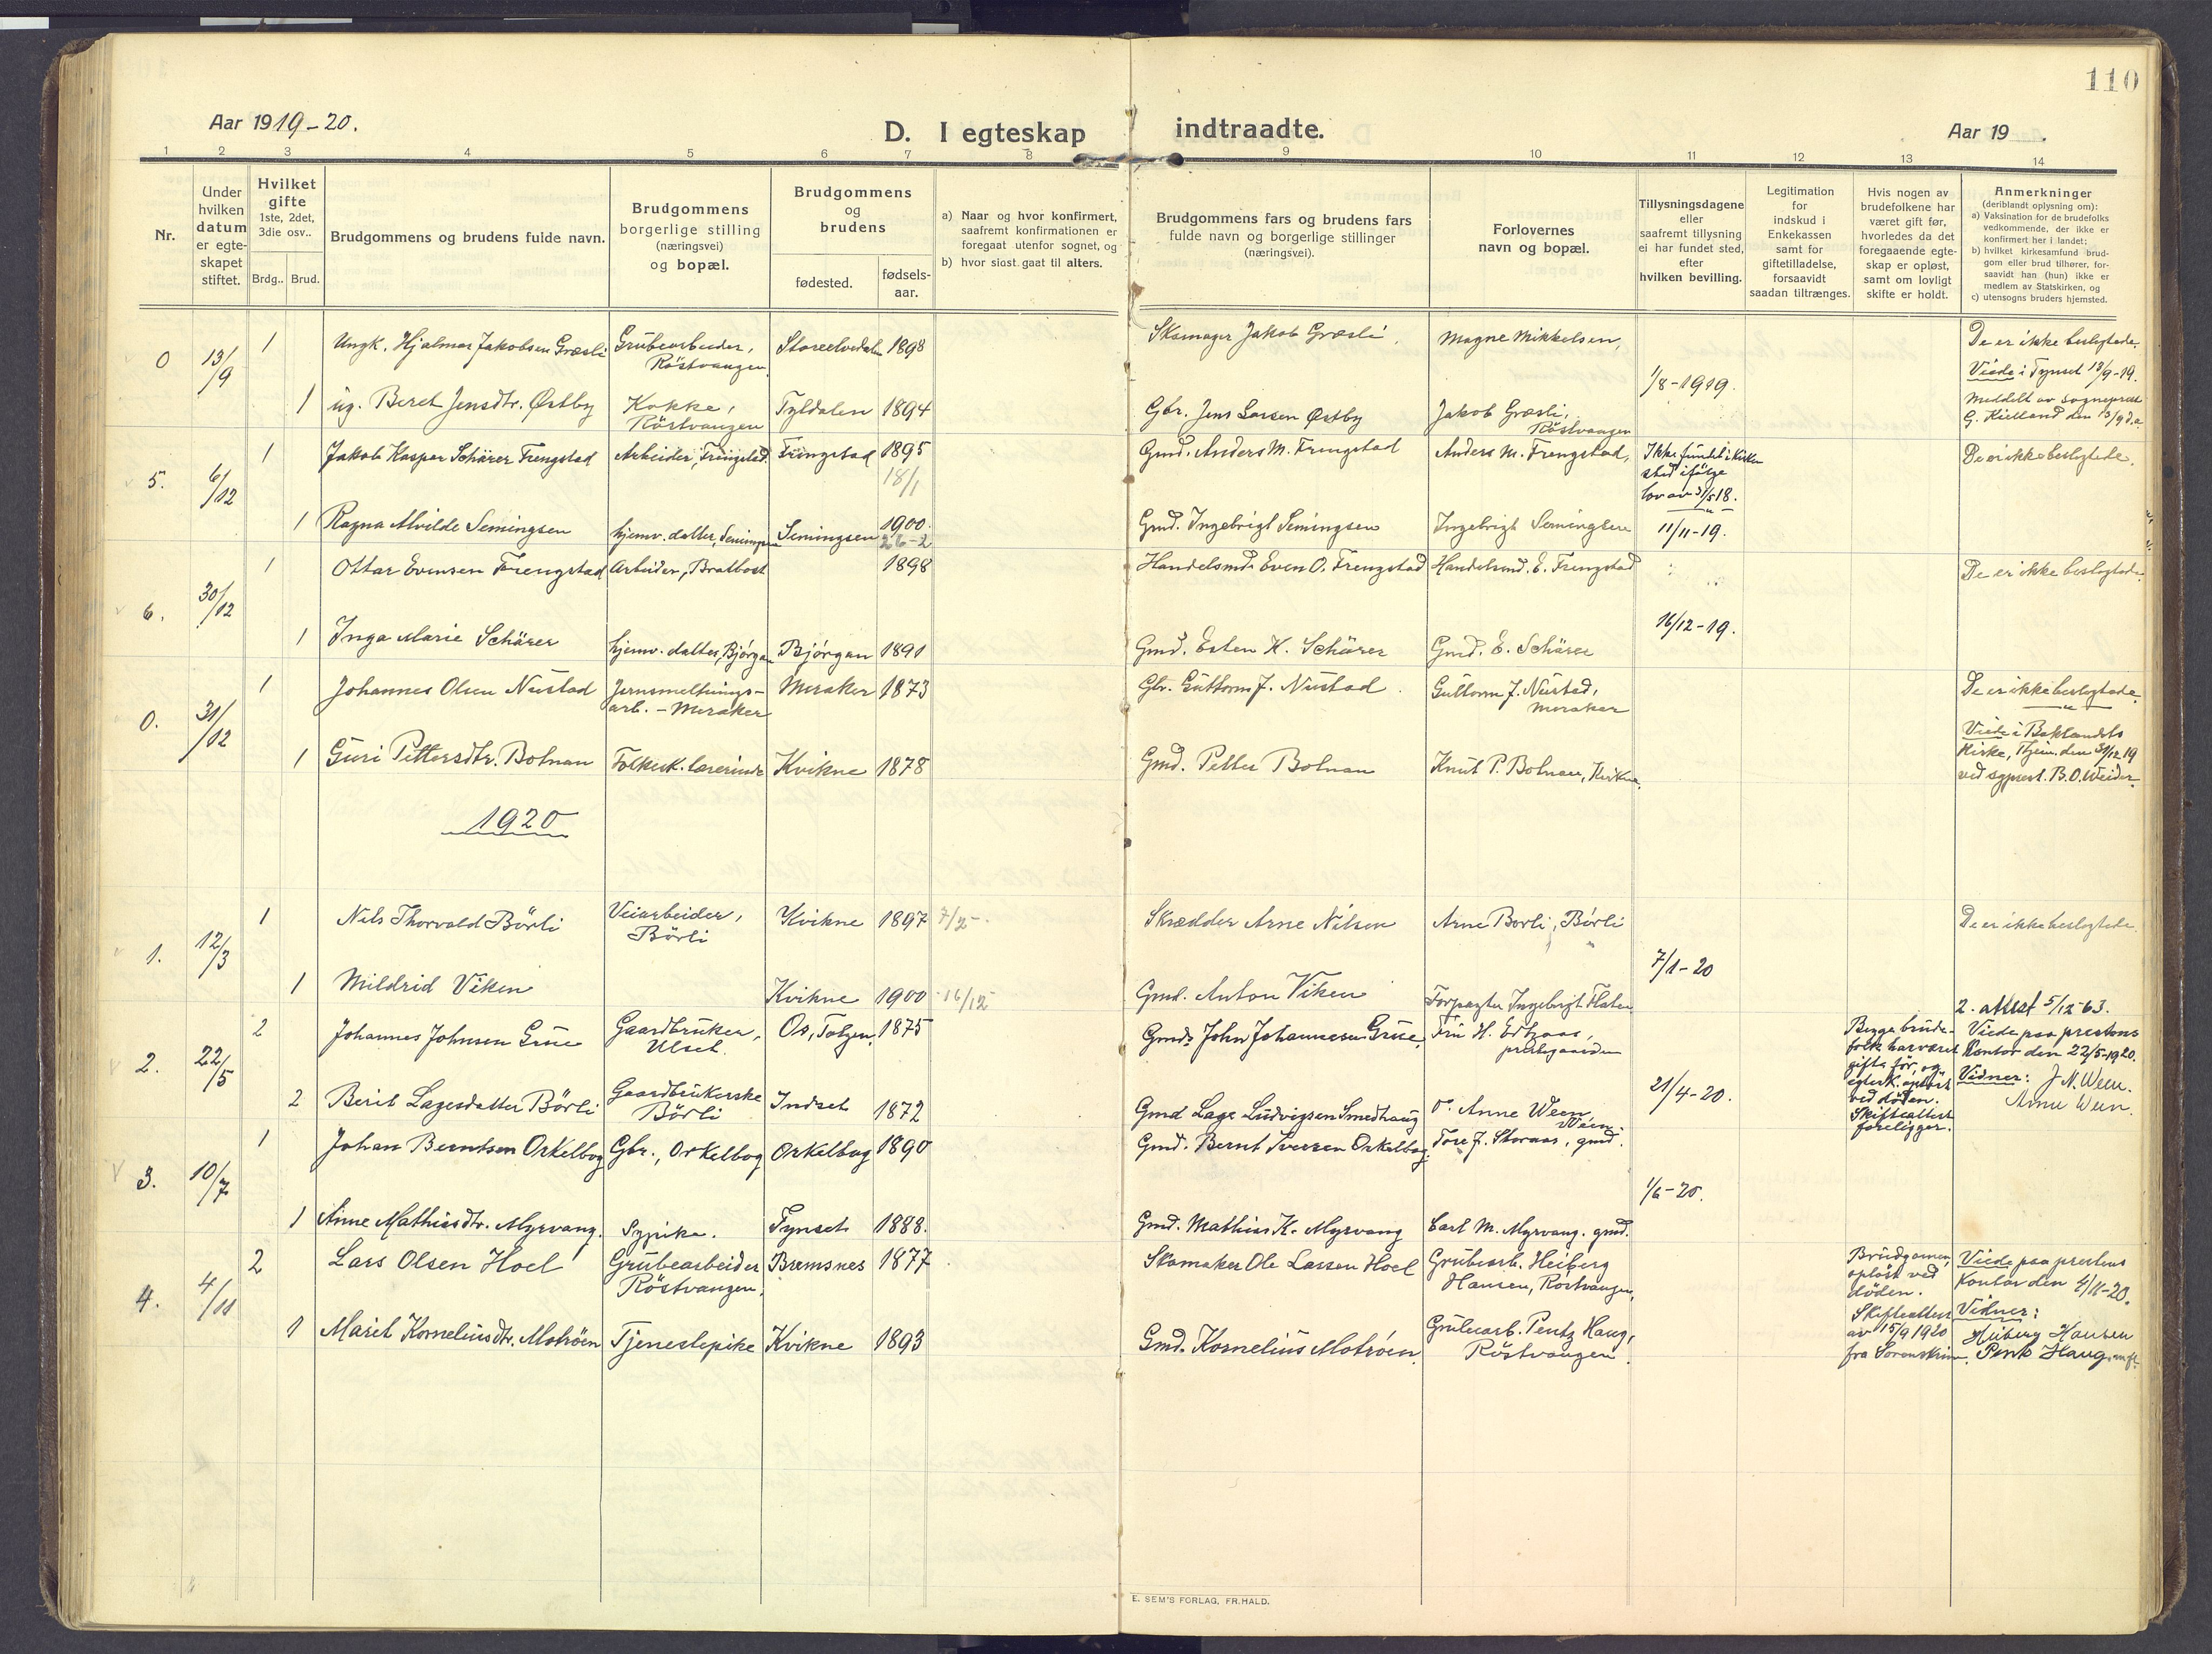 110
Aar 1919-20.
D. I egteskap indtraadte.
Aar 19 .
1 2 3 4 5 6 7 8 9 10 11 12 13 14
Nr.
Under hvilken datum er egteskapet stiftet.
Hvilket gifte 1ste, 2det, 3die osv..
Brdg.. Brud.
Brudgommens og brudens fulde navn.
Brudgommens borgerlige stilling (næringsvei) og bopæl.
Brudgommens og brudens
fødested.
fødselsaar.
a) Naar og hvor konfirmert, saafremt konfirmationen er foregaat utenfor sognet, og
b) hvor sidst gaat til alters.
Brudgommens fars og brudens fars fulde navn og borgerlige stillinger (næringsvei).
Forlovernes navn og bopæl.
Tillysningsdagene eller saafremt tillysning ei har fundet sted, efter hvilken bevilling.
Legitimation for indskud i Enkekassen samt for giftetilladelse, forsaavidt saadan tiltrænges.
Hvis nogen av brudefolkene har været gift før, hvorledes da det foregaaende egteskap er opløst, samt om lovligt skifte er holdt.
Anmerkninger (deriblandt oplysning om):
a) Vaksination for de brudefolks vedkommende, der ikke er konfirmert her i landet;
b) hvilket kirkesamfund brudgom eller brud tilhører, forsaavidt han (hun) ikke er medlem av Statskirken, og
c) utensogns bruders hjemsted.
0 13/9 1 Ungk. Hjalmar Jakobsen Græsli Grubearbeider, Röstvangen Storelvedalen 1898 Skomager Jakob Græsli. Magne Mikkelsen, De er ikke beslegtede.
1/8-1919.
Viede i Tynset 13/9-19.
Meddelt av sogneprest
G. Kielland den 13/9 d.a.
1 ug. Beret Jensdtr. Østby Kokke, Röstvangen Tyldalen 1894 Gbr. Jens Larsen Østby Jakob Græsli, Röstvangen
5. 6/12 1 Jakob Kasper Schärer Frengstad Arbeider, Frengstad Frengstad 1895 18/1 Gmd. Anders M. Frengstad Anders M. Frengstad, De er ikke beslegtede.
Ikke fundet i kirken
sted ifölge
lov av 31/5 18.
1 Ragna Alvilde Semingsen hjemv. datter, Semingsen Semingsen 1900 26-2 Gmd. Ingebrigt Semingsen Ingebrigt Semingsen 11/11-19.
6. 30/12 1 Ottar Evensen Frengstad Arbeider, Bratbost 1898 Handelsmd. Even O. Frengstad Handelsmd. E. Frengstad De er ikke beslegtede
16/12-19.
1 Inga Marie Schärer hjemv. datter, Bjørgan Bjørgan 1891 Gmd. Esten K. Schärer Gmd. E. Schärer
0. 31/12 1 Johannes Olsen Nustad Jernsmeltningsarb. - Meraker Meraker 1873 Gbr. Guttorm J. Nustad. Guttorm J. Nustad, Meraker De er ikke beslegtede
Viede i Baklandets
Kirke, Thjem. den 31/12 19
ved sgprest. B. O. Weider.
1 Guri Pettersdtr. Botnan Folkesk. lærerinde Kvikne 1878 Gmd. Petter Botnan Knut P. Botnan, Kvikne.
1920
1. 12/3 1 Nils Thorvald Börli Veiarbeider, Börli Kvikne 1897 7/2 Skrædder Arne Nilsen Arne Borli, Börli De er ikke beslegtede.
7/1-20
1 Mildrid Viken Kvikne 1900 16/12 Gmd. Anton Viken Forpagter Ingebrigt Flaten
2. attest 5/12-63.
2. 22/5 2 Johannes Johnsen Grue Gaardbruker, Ulset. Os, Tolgen. 1875 Gmd. John Johannesen Grue. Fru H. prestegaarden
Begge brudefolk har været gifte för, og egtesk. oplöst ved döden. Skifteattest foreligger.
Viede paa prestens
Kontor den 22/5-1920.
Vidner: J. N. Ween.
Anne Ween.
21/4-20.
2 Berit Lagesdatter Börli Gaardbrukerske Börli Indset 1872 Gmd Lage Ludvigsen Smedhaug o. Anne Ween, Ween.
3. 10/7 1 Johan Berntsen Orkelbog Gbr., Orkelbog Orkelbog 1890 Gmd. Bernt Iversen Orkelbog. Tore J. Storaas, gmd.
1/6-20.
1 Anne Mathiasdtr. Myrvang. Sypike. Tynset 1888. Gmd. Mathias K. Myrvang Carl M. Myrvang. gmd.
4. 4/11 2 Lars Olsen Hoel Grubearbeider Röstvangen, Bremsnes 1877 Skomaker Ole Larsen Hoel Grubearb. Heiberg Hansen, Röstvangen,
Brudgomen oplöst ved döden. Skifteattest av 15/9 1920 fra Sorenskriv.
Viede paa prestens
Kontor den 4/11-20.
Vidner:
Heiberg Hansen
Pentz Haug
1 Marit Korneliusdtr. Motröen Tjenestepike Kvikne 1893 Gmd. Kornelius Motröen. Grubearb. Pentz Haug, Röstvangen.
E. SEM'S FORLAG, FR.HALD.